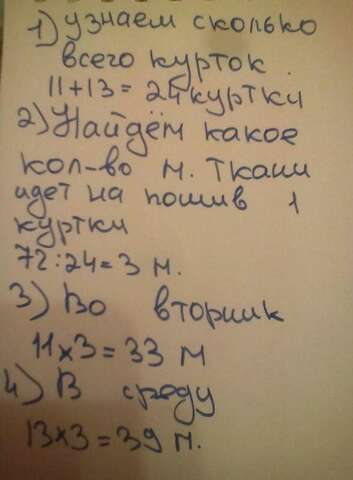 1) узнаем сколько
всего курток.
11+13=24куртки
2) Найдём какое
кол-во м. ткани
идет на пошив 1
куртки
72:24=3 м.
3) Во вторник
11х3=33 м
4) В среду
13х3=39 м.